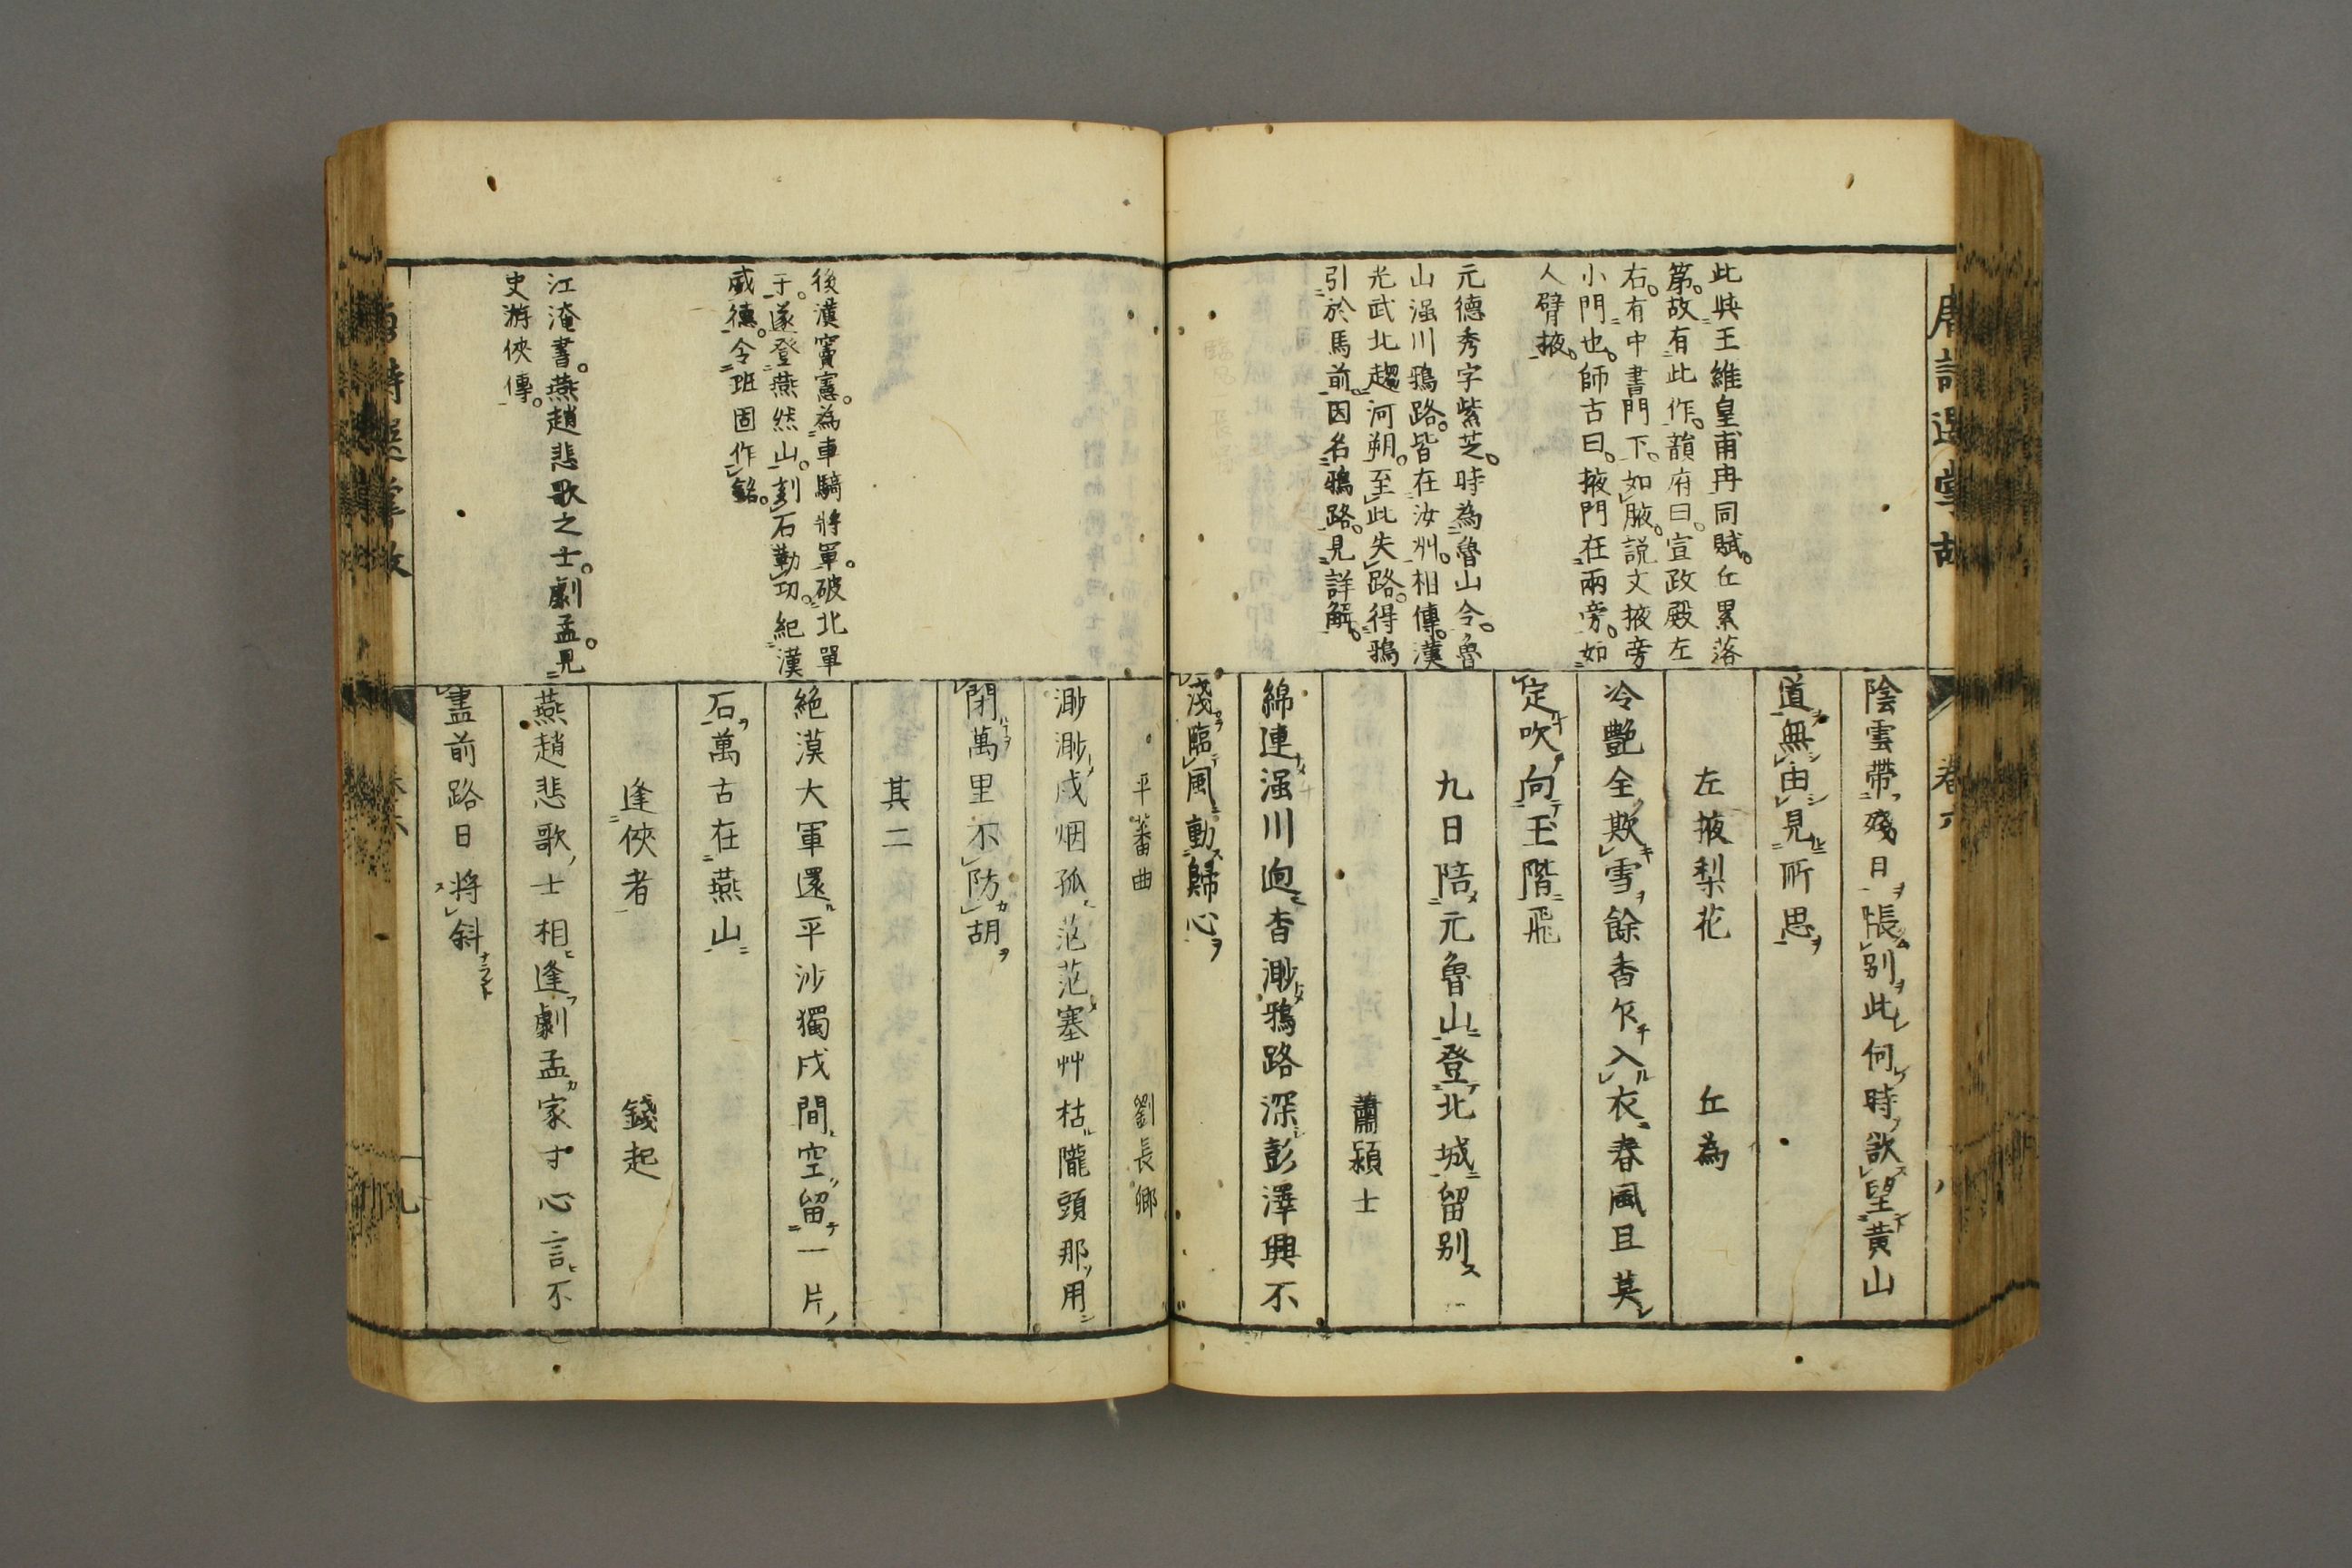 唐詩選掌故 卷六
此與王維皇甫冉同賦。丘累落
第。故有此作。韻府曰。宣政殿左
右。有中書門下。如腋。説文掖旁
小門也。師古曰。掖門在兩旁。如
人臂掖。
元德秀字紫芝。時為魯山令。魯
山强川鴉路。皆在汝州。相傳。漢
光武北趨河朔。至此失路。得鴉
引於馬前。因名鴉路。見詳解。
陰雲帶殘日悵別此何時欲望黃山
道無由見所思
左掖梨花 丘為
冷艷全欺雪餘香乍入衣春風且莫
定吹向玉階飛
九日陪元魯山登北城留別
蕭潁士
綿連强川迥杳渺鴉路深彭澤興不
淺臨風動歸心
後漢竇憲。為車騎將軍。破北單
于。遂登燕然山。刻石勒功。紀漢
威德。令班固作銘。
江淹書。燕趙悲歌之士。劇孟。見
史游俠傳。
平蕃曲 劉長卿
渺渺戍烟孤茫茫塞艸枯隴頭那用
閉萬里不防胡
其二
絶漠大軍還平沙獨戍間空留一片
石萬古在燕山
逢俠者 錢起
燕趙悲歌士相逢劇孟家寸心言不
盡前路日將斜
唐詩選掌故 卷六 九